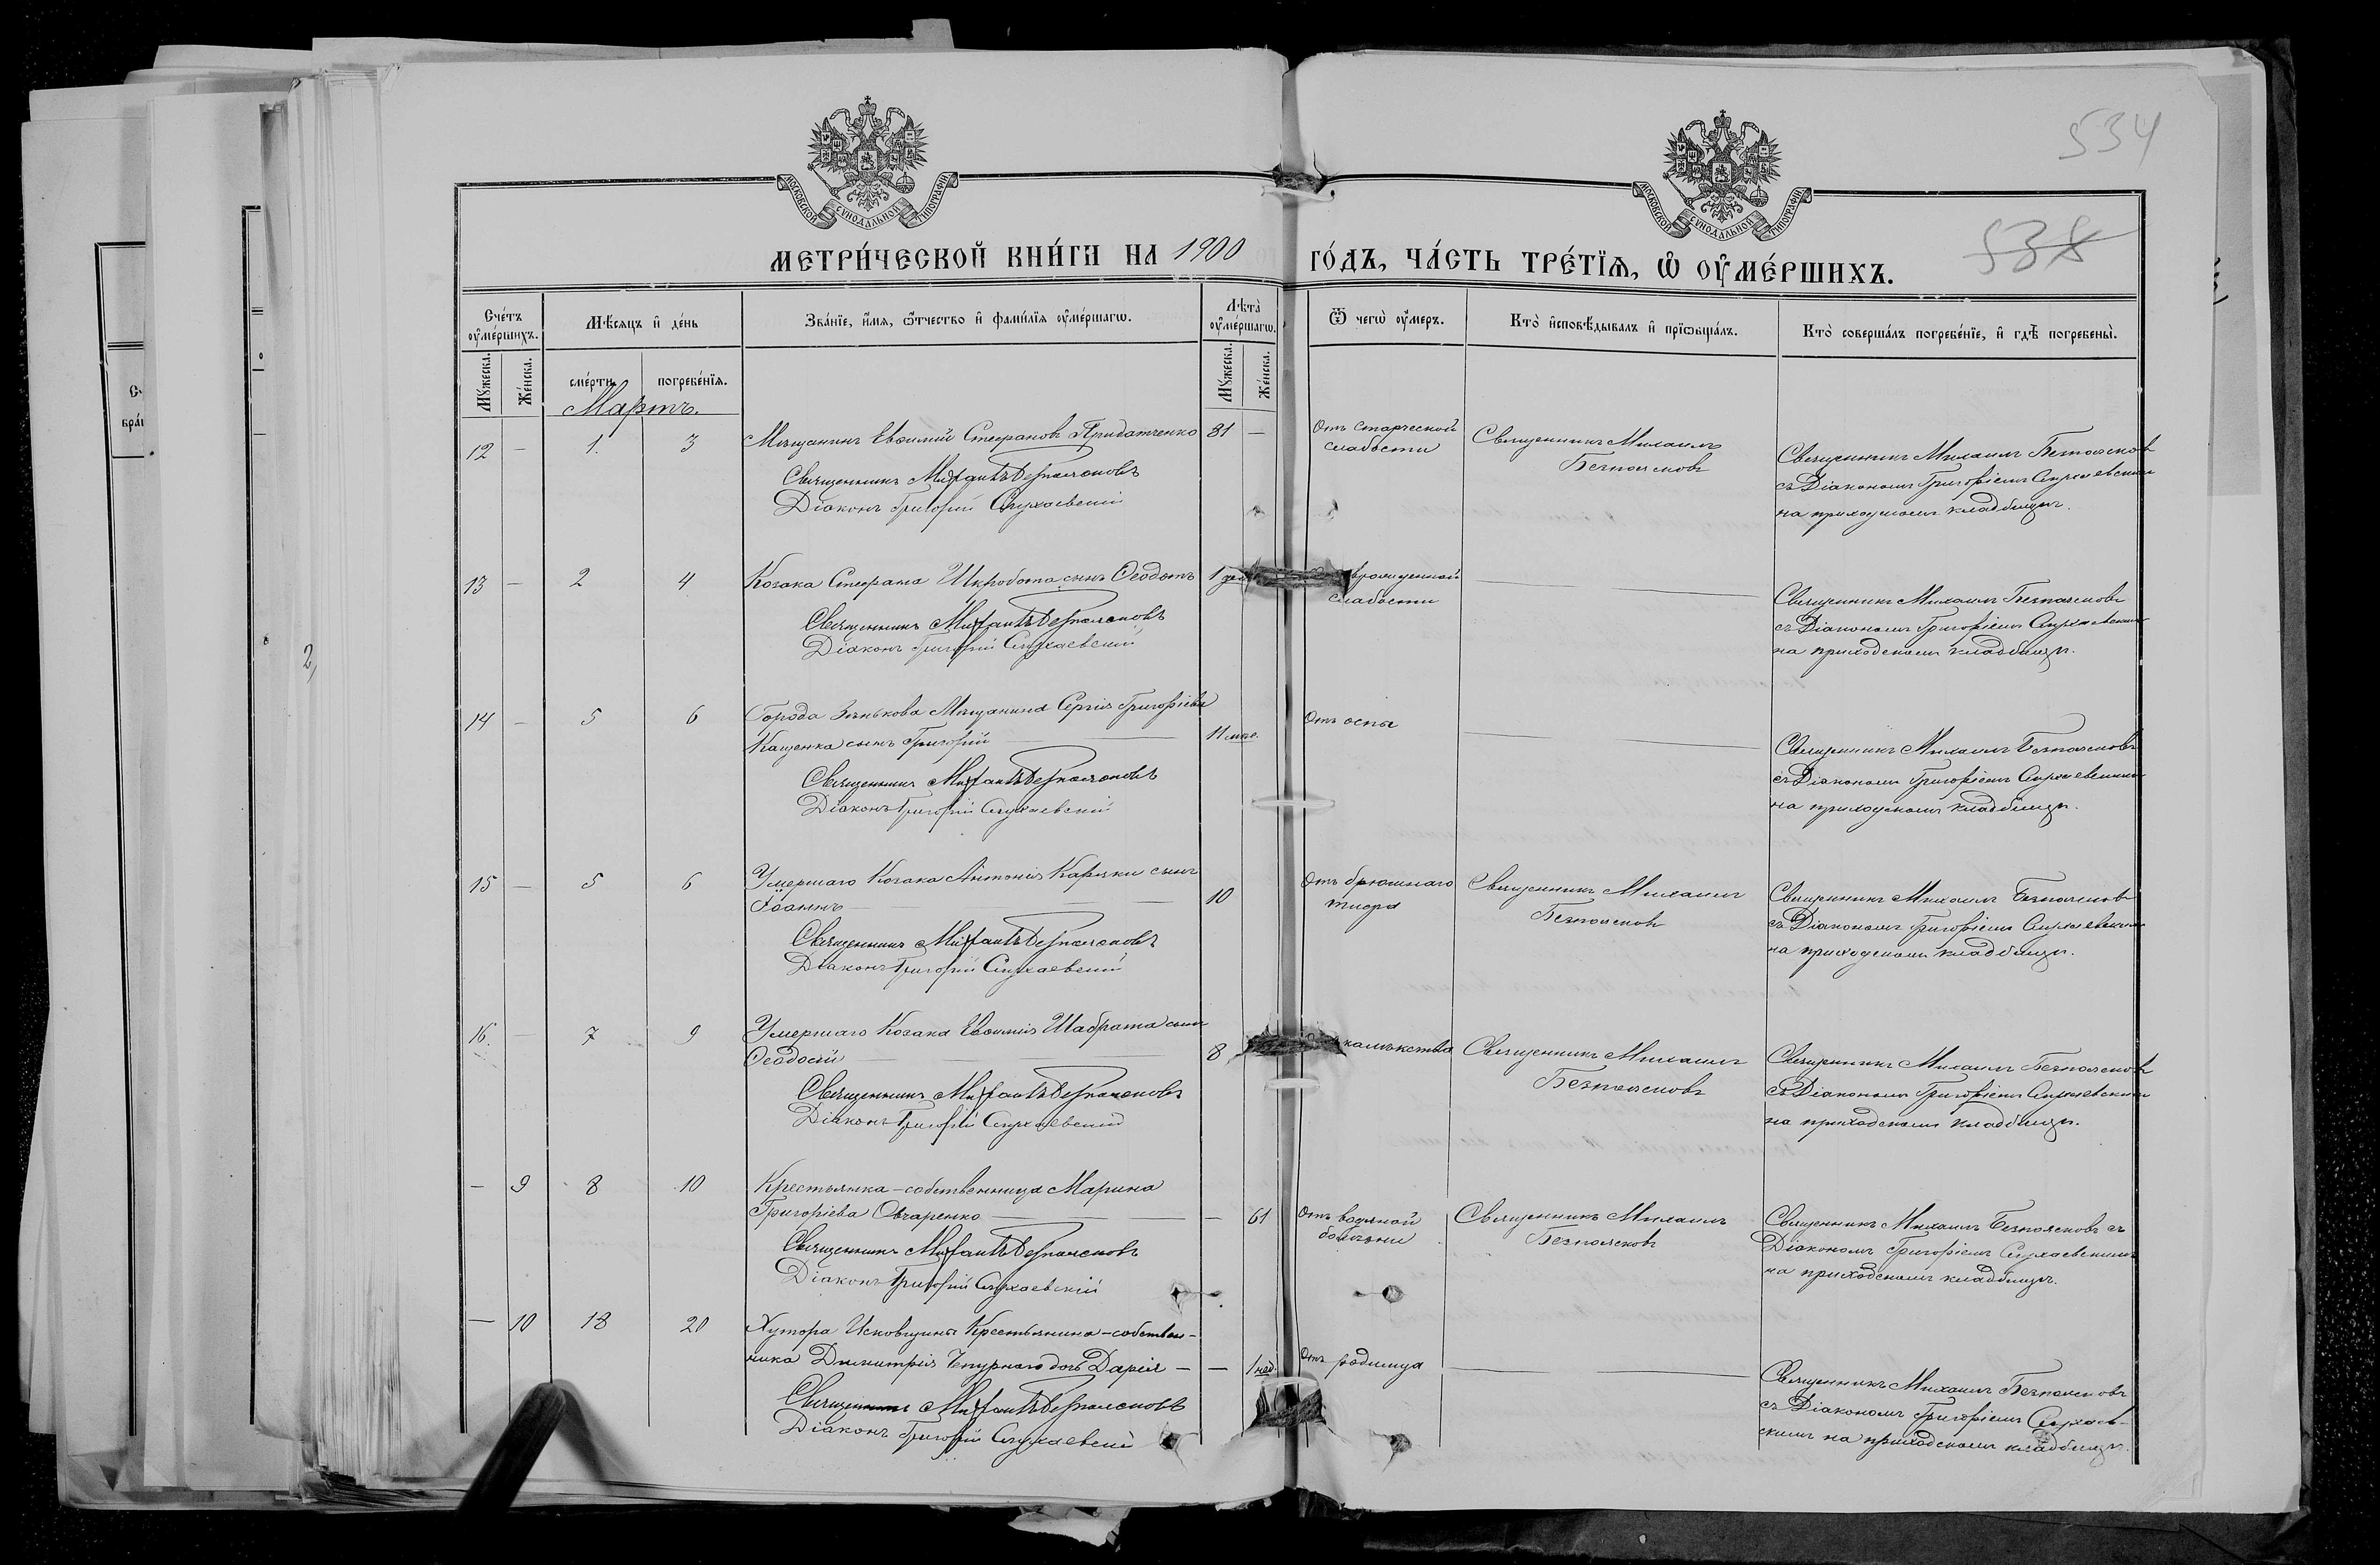 МОСКОВСКОЙ СѴНОДАЛЬНОЙ ТИПОГРАФІИ
МОСКОВСКОЙ СѴНОДАЛЬНОЙ ТИПОГРАФІИ
534
538
МЕТРИ́ЧЕСКОЙ КНИ́ГИ НА 1900 ГО́ДЪ, ЧА́СТЬ ТРЕ́ТЇѦ, Ѡ҆ ОУ҆МЕ́РШИХЪ.
Сче́тъ оу҆ме́ршихъ.
Мꙋ́жеска.
Же́нска.
Мѣ́сѧцъ и҆ де́нь
сме́рти.
погребе́нїѧ.
Зва́нїе, и҆́мѧ, ѻ҆́тчество и҆ фами́лїѧ оу҆ме́ршагѡ.
Лѣ́та оу҆ме́ршагѡ.
Мꙋ́жеска.
Же́нска.
Ѿ чегѡ̀ оу҆́меръ.
Кто̀ и҆сповѣ́дывалъ и҆ прїѡбща́лъ.
Кто̀ соверша́лъ погребе́нїе, и҆ гдѣ̀ погребены̀.
Мартъ.
12 — 1. 3 Мѣщанинъ Евѳимій Стефановъ Придатченко 81 —
Священникъ Михаилъ Безпоясновъ
Діаконъ Григорій Слухаевскій
Отъ старческой
слабости
Священникъ Михаилъ
Безпоясновъ
Священникъ Михаилъ Безпоясновъ
съ Діакономъ Григоріемъ Слухаевскимъ
на приходскомъ кладбищѣ.
13 — 2 4 Козака Стефана Шкробота сынъ Ѳеодотъ 1 дня
Священникъ Михаилъ Безпоясновъ
Діаконъ Григорій Слухаевскій
врожденной
слабости
Священникъ Михаилъ Безпоясновъ
съ Діакономъ Григоріемъ Слухаевскимъ
на приходскомъ кладбищѣ.
14 — 5 6 Города Зѣнькова Мѣщанина Сергія Григоріева
Кащенка сынъ Григорій 11 мѣс.
Священникъ Михаилъ Безпоясновъ
Діаконъ Григорій Слухаевскій
Отъ оспы
Священникъ Михаилъ Безпоясновъ
съ Діакономъ Григоріемъ Слухаевскимъ
на приходскомъ кладбищѣ.
15 — 5 6 Умершаго Козака Антонія Каряки сынъ
Іоаннъ 10
Священникъ Михаилъ Безпоясновъ
Діаконъ Григорій Слухаевскій
Отъ брюшнаго
тифа
Священникъ Михаилъ
Безпоясновъ
Священникъ Михаилъ Безпоясновъ
съ Діакономъ Григоріемъ Слухаевскимъ
на приходскомъ кладбищѣ.
16. — 7 9 Умершаго Козака Евѳимія Шабрата сынъ
Ѳеодосій 8
Священникъ Михаилъ Безпоясновъ
Діаконъ Григорій Слухаевскій
калѣкства
Священникъ Михаилъ
Безпоясновъ
Священникъ Михаилъ Безпоясновъ
съ Діакономъ Григоріемъ Слухаевскимъ
на приходскомъ кладбищѣ.
— 9 8 10 Крестьянка-собственница Марина
Григоріева Овчаренко — 61
Священникъ Михаилъ Безпоясновъ
Діаконъ Григорій Слухаевскій
Отъ водяной
болѣзни
Священникъ Михаилъ
Безпоясновъ
Священникъ Михаилъ Безпоясновъ съ
Діакономъ Григоріемъ Слухаевскимъ
на приходскомъ кладбищѣ.
— 10 18 20 Хутора Исковщины Крестьянина-собствен-
ника Димитрія Чепурнаго дочь Дарія — — 1 нед.
Священникъ Михаилъ Безпоясновъ
Діаконъ Григорій Слухаевскій
Отъ родимца
Священникъ Михаилъ Безпоясновъ
съ Діакономъ Григоріемъ Слухаев-
скимъ на приходскомъ кладбищѣ.